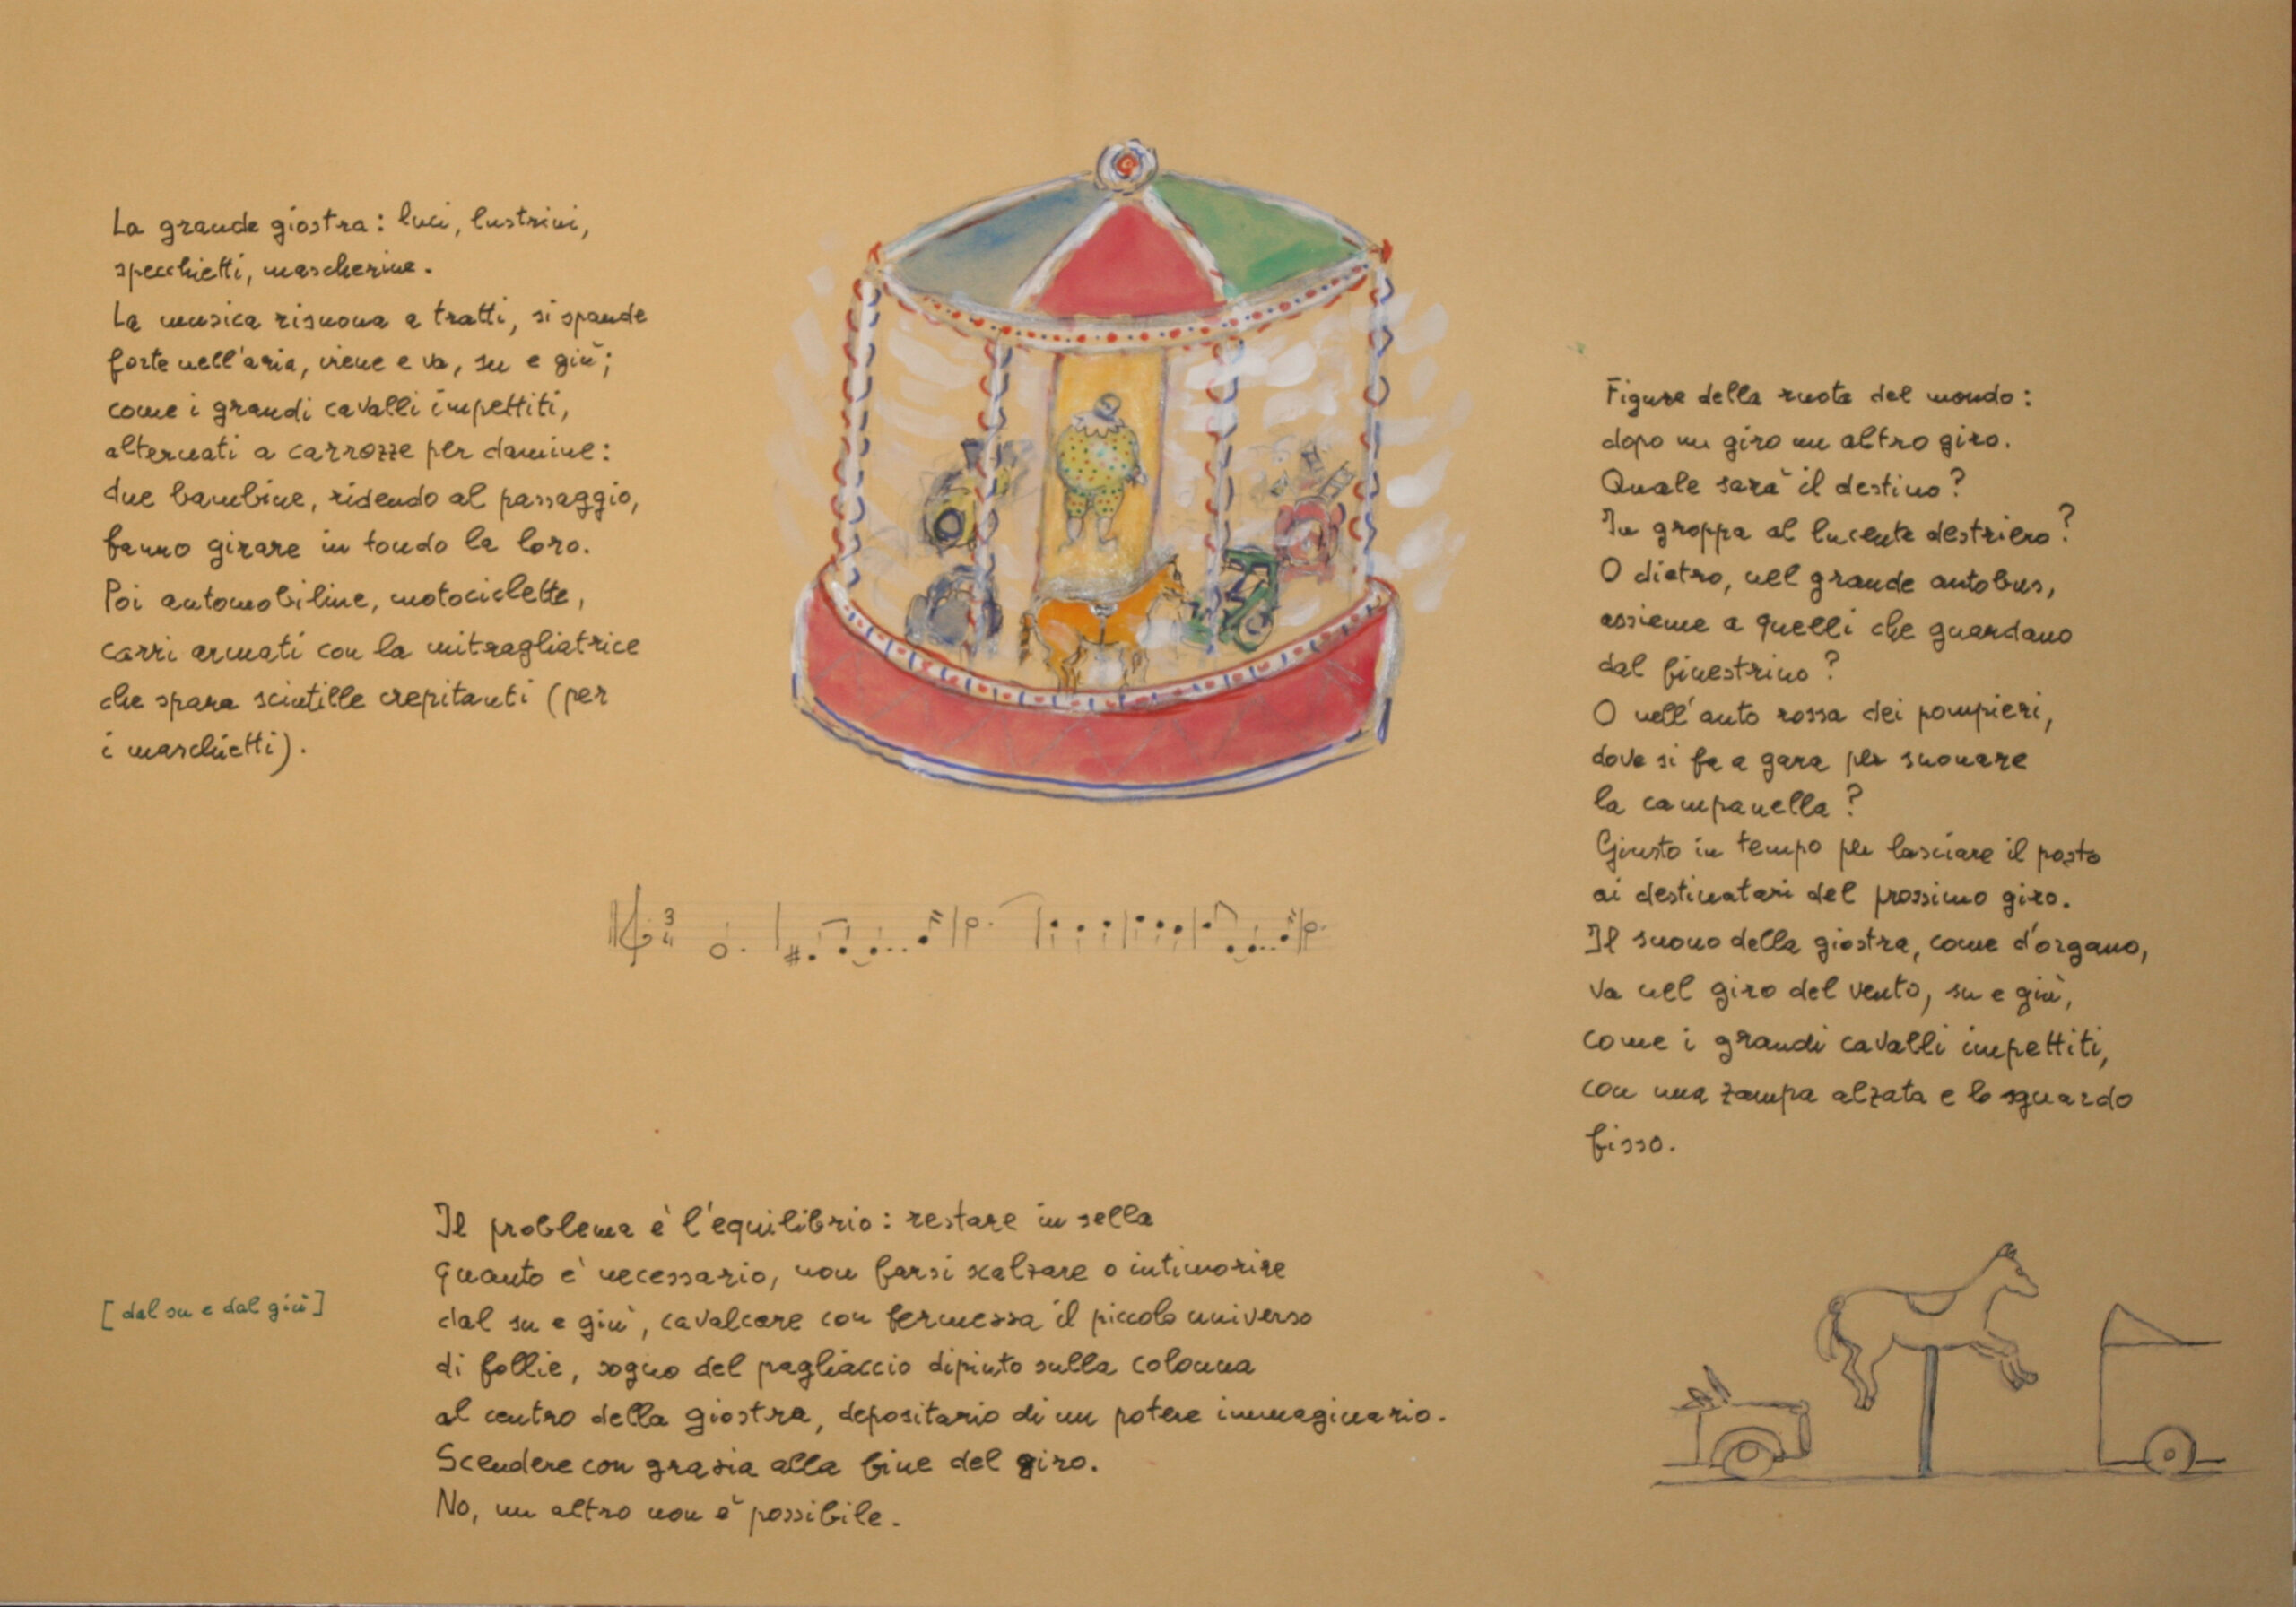 La grande giostra: luci, lustrini,
specchietti, mascherine.
La musica risuona a tratti, si spande
forte nell'aria, viene e va, su e giù;
come i grandi cavalli impettiti,
alternati a carrozze per damine:
due bambine, ridendo al passaggio,
fanno girare in tondo la loro.
Poi automobiline, motociclette,
carri armati con la mitragliatrice
che spara scintille crepitanti (per
i maschietti).
3
4
Figure della ruota del mondo:
dopo un giro un altro giro.
Quale sarà il destino?
In groppa al lucente destriero?
O dietro, nel grande autobus,
assieme a quelli che guardano
dal finestrino?
O nell'auto rossa dei pompieri,
dove si fa a gara per suonare
la campanella?
Giusto in tempo per lasciare il posto
ai destinatari del prossimo giro.
Il suono della giostra, come d'organo,
va nel giro del vento, su e giù,
come i grandi cavalli impettiti,
con una zampa alzata e lo sguardo
fisso.
[dal su e dal giù]
Il problema è l'equilibrio: restare in sella
quanto è necessario, non farsi scalzare o intimorire
dal su e giù, cavalcare con fermezza il piccolo universo
di follie, sogno del pagliaccio dipinto sulla colonna
al centro della giostra, depositario di un potere immaginario.
Scendere con grazia alla fine del giro.
No, un altro non è possibile.